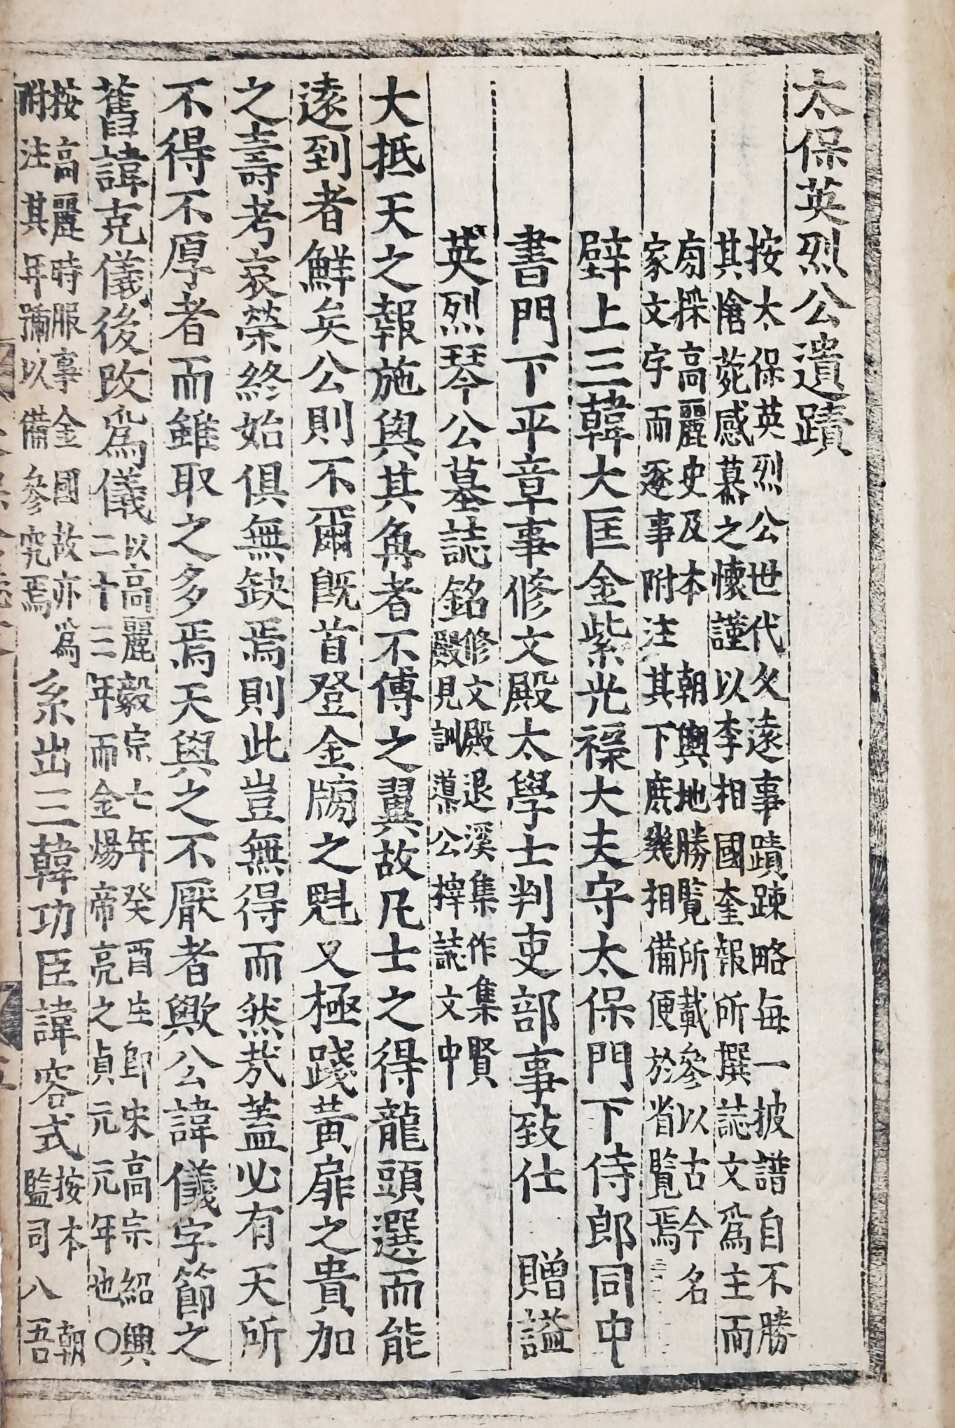 太保英烈公遺蹟
按太保英烈公世代久遠事蹟踈略每一披譜自不勝
其愴菀感慕之懷謹以李相國奎報所撰誌文爲主而
旁採高麗史及本 朝輿地勝覽所載參以古今名
家文字而逐事附注其下庶幾相備便於省覽焉
壁上三韓大匡金紫光祿大夫守太保門下侍郎同中
書門下平章事修文殿太學士判吏部事致仕 贈謚
英烈琴公墓誌銘
修文殿退溪集作集賢
殿見訓蒙公擇誌文中
大抵天之報施與其角者不傅之翼故凡士之得龍頭選而能
遠到者鮮矣公則不爾旣首登金牓之魁又極踐黃扉之貴加
之壽考哀榮終始俱無缺焉則此豈無得而然㢤蓋必有天所
不得不厚者而雖取之多焉天與之不厭者歟公諱儀字節之
舊諱克儀後改爲儀
以高麗毅宗七年癸酉生卽宋高宗紹興
二十三年而金煬帝亮之貞元元年也○
按高麗時服事金國故亦爲
附注其年號以備參究焉
系出三韓功臣諱容式
按本 朝
監司八吾